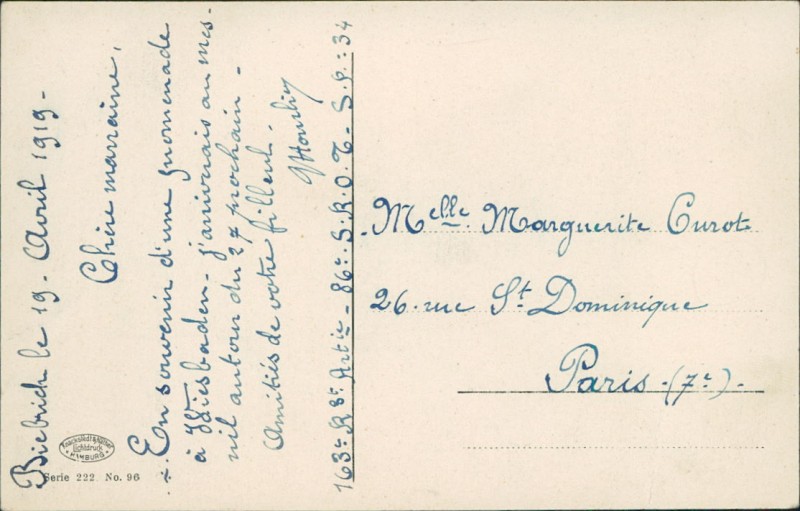 Biebrich le 19. Avril 1919 -
Chère marraine,
- En souvenir d'une promenade
à Wiesbaden - j'arriverais au mes-
nil autour du 27 prochain -
Amitiés de votre filleul.
163e Rt Artie - 86e S.R.O.T. S.P.: 34
Melle Marguerite Curot
26. rue St. Dominique
Paris - (7e) -
Knackstedt & Näther
Lichtdruck
HAMBURG
Serie 222 No. 96